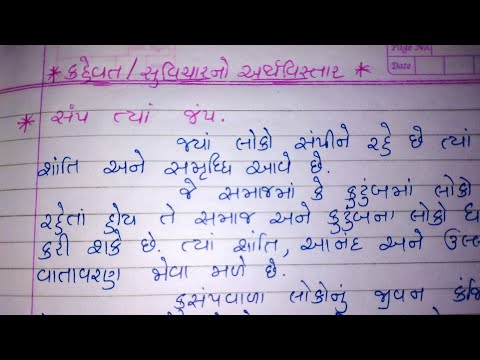 Page No.
Date
* કહેવત / સુવિચારનો અર્થવિસ્તાર *
* સંપ ત્યાં જંપ.
જ્યાં લોકો સંપીને રહે છે ત્યાં
શાંતિ અને સમૃધ્ધિ આવે છે.
જે સમાજમાં કે કુટુંબમાં લોકો
રહેતાં હોય તે સમાજ અને કુટુંબના લોકો
કરી શકે છે. ત્યાં શાંતિ, આનંદ અને
વાતાવરણ જોવા મળે છે.
કુસંપવાળા લોકોનું જીવન